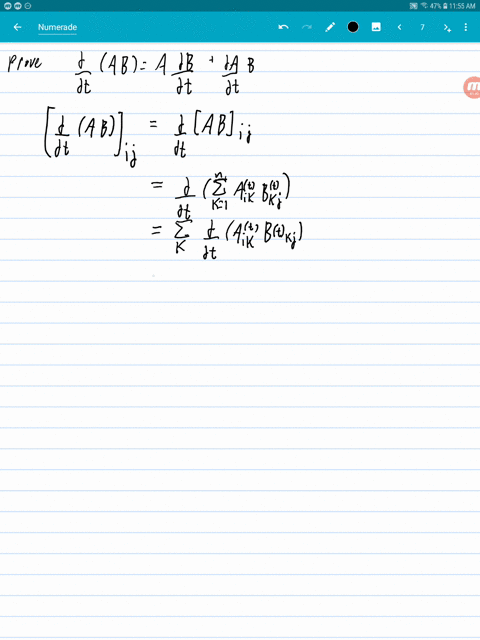 47% 11:55 AM
Numerade 7
Prove d/dt (AB) = A dB/dt + dA/dt B
[d/dt (AB)]_ij = d/dt [AB]_ij
= d/dt (∑_{K=1}^{n} A_{iK}^{(t)} B_{Kj}^{(t)})
= ∑_K d/dt (A_{iK}^{(t)} B^{(t)}_{Kj})